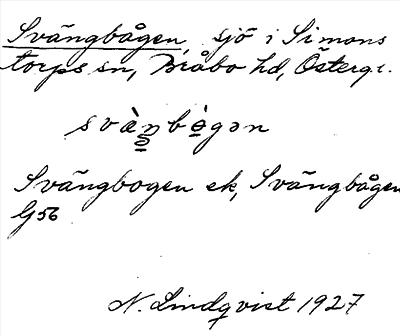 Svängbågen, sjö i Simons
torps sn, Bråbo hd, Österg.
Svängbogen ek, Svängbågen
G56
N. Lindqvist 1927